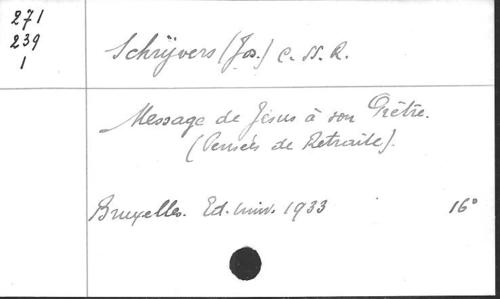 271
239
1
Schrijvers (Jos.) C. SS. R.
Message de Jésus à son Prêtre.
(Pensées de Retraite).
Bruxelles. Ed. Univ. 1933 16°